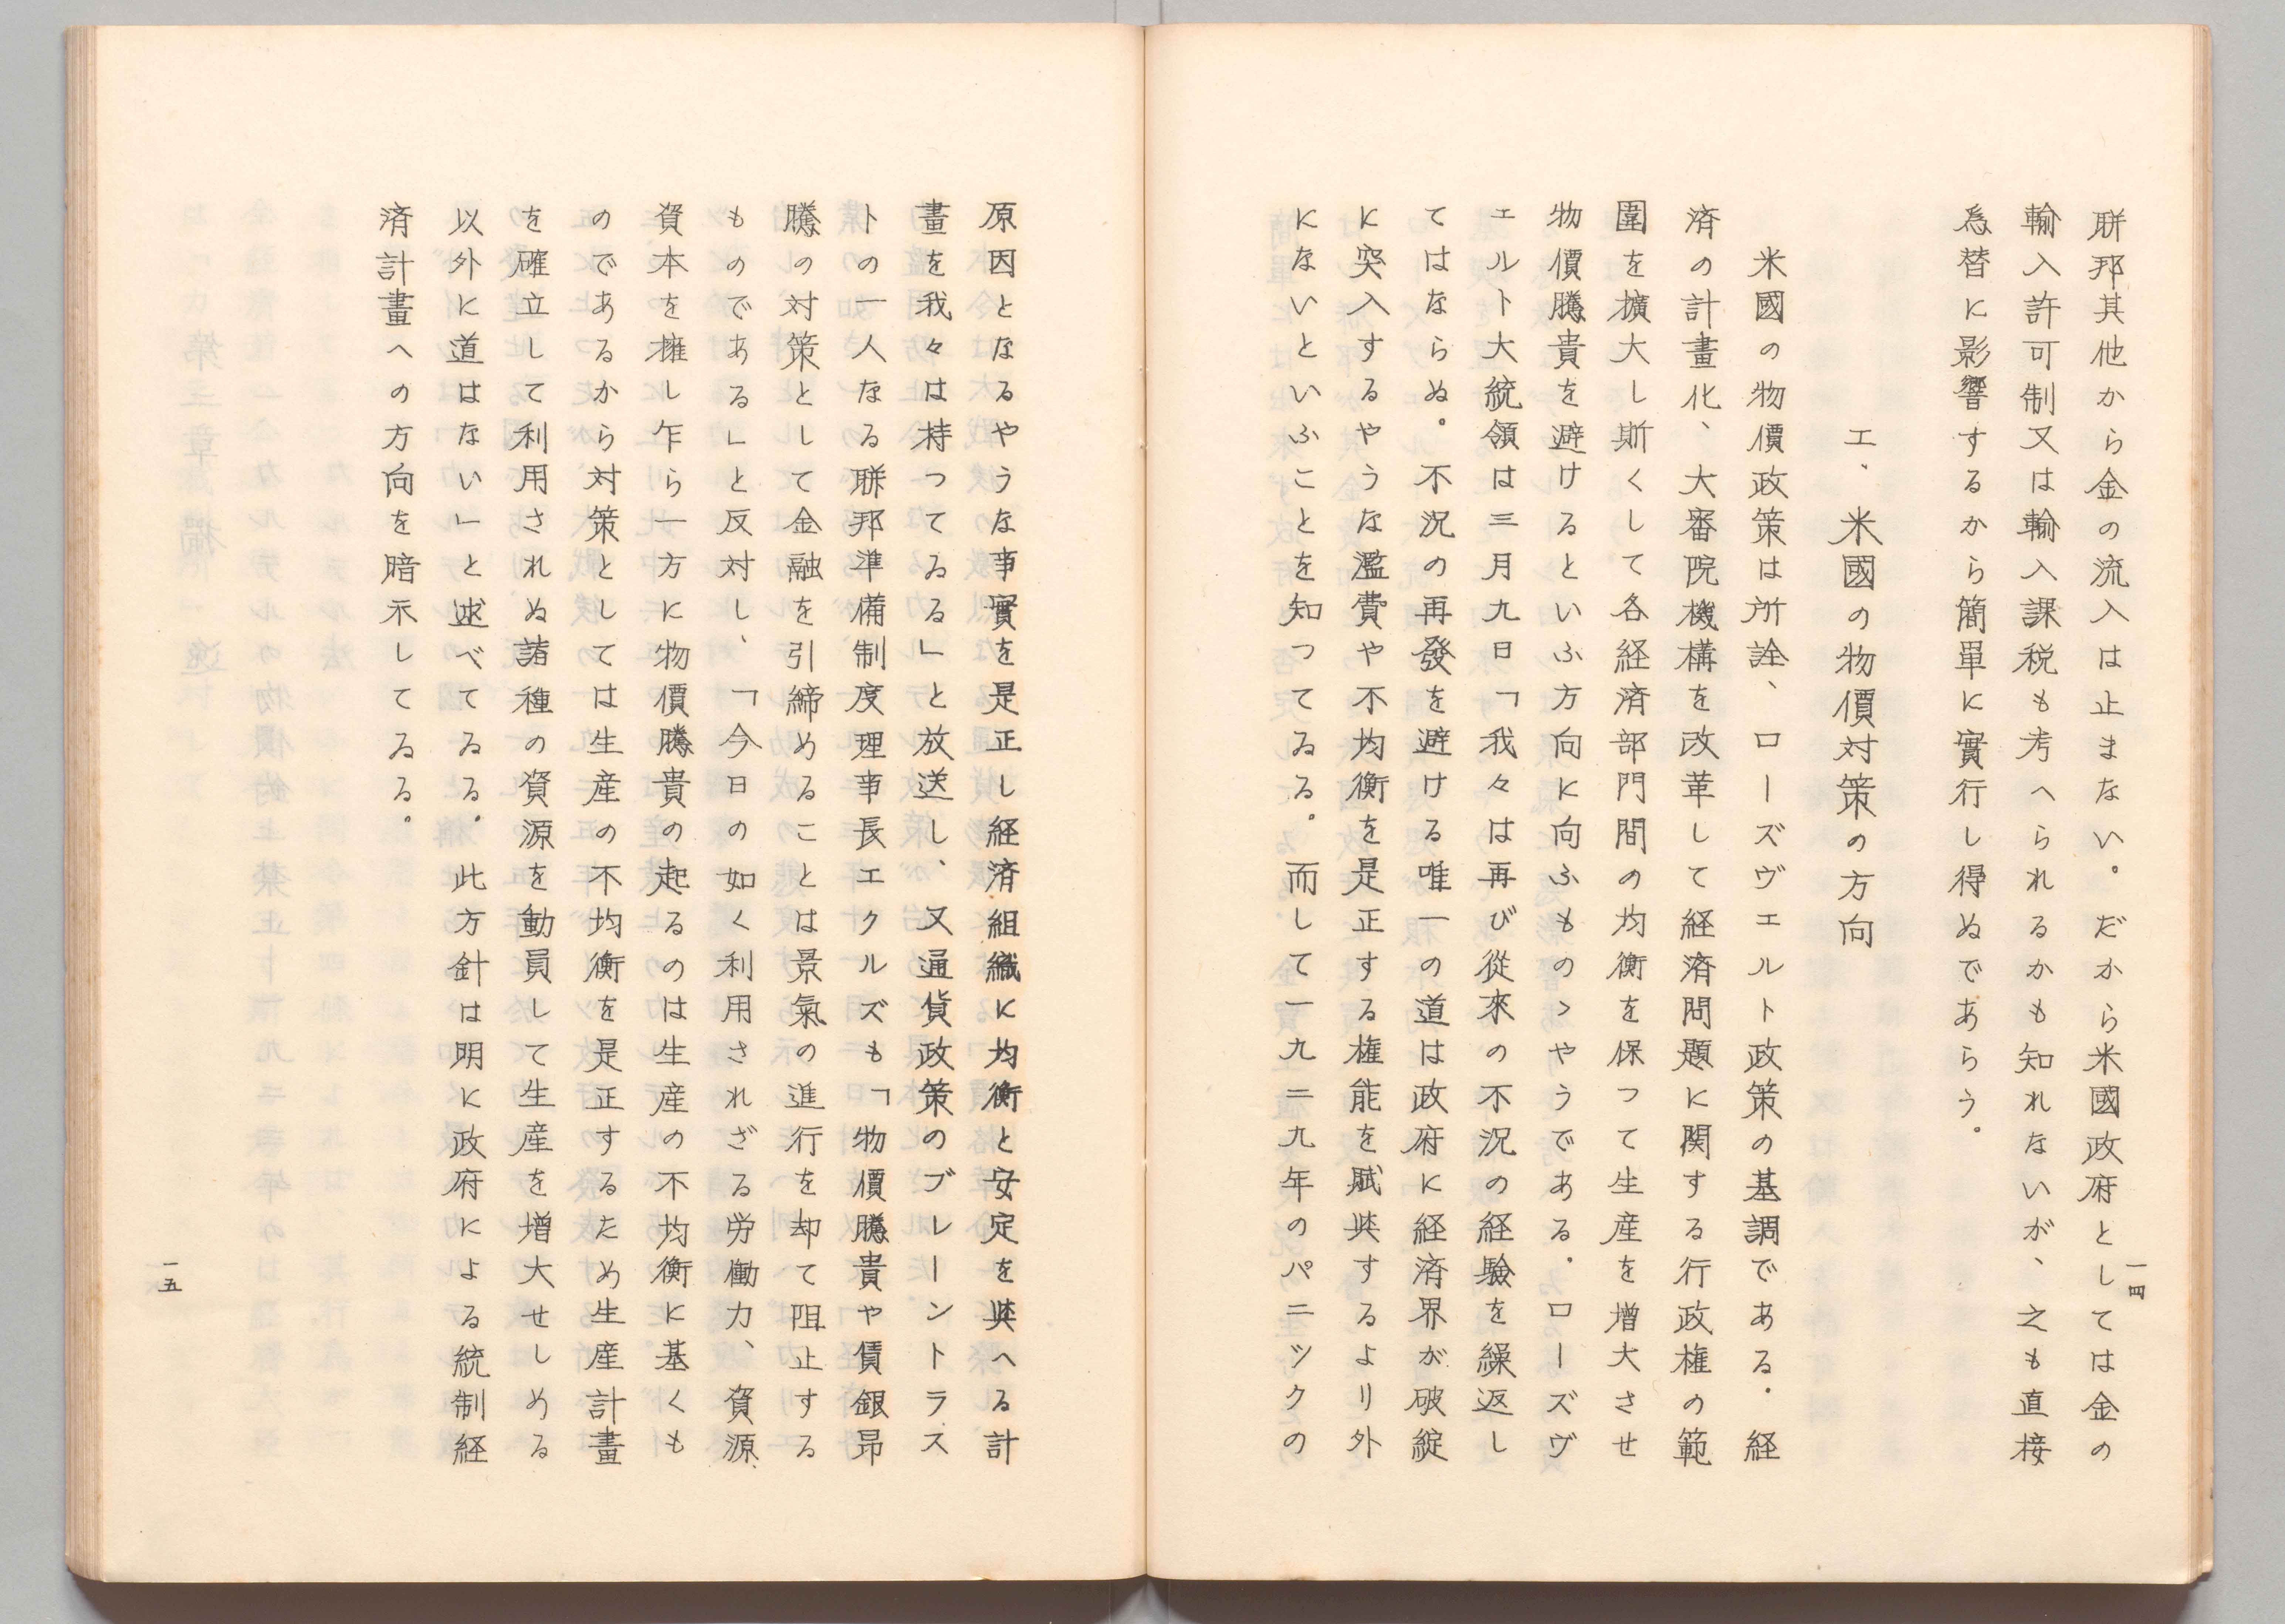 一四
聯邦其他から金の流入は止まない。だから米國政府としては金の
輸入許可制又は輸入課税も考へられるかも知れないが、之も直接
為替に影響するから簡單に實行し得ぬであらう。
エ、米國の物價対策の方向
米國の物價政策は所詮、ローズヴエルト政策の基調である。経
済の計畫化、大審院機構を改革して経済問題に関する行政権の範
圍を擴大し斯くして各経済部門間の均衡を保つて生産を増大させ
物價騰貴を避けるといふ方向に向ふものゝやうである。ローズヴ
エルト大統領は三月九日「我々は再び從來の不況の経驗を繰返し
てはならぬ。不況の再發を避ける唯一の道は政府に経済界が破綻
に突入するやうな濫費や不均衡を是正する権能を賦與するより外
にないといふことを知つてゐる。而して一九二九年のパニツクの
原因となるやうな事實を是正し経済組織に均衡と安定を與へる計
畫を我々は持つてゐる」と放送し、又通貨政策のブレーントラス
トの一人なる聯邦準備制度理事長エクルズも「物價騰貴や賃銀昻
騰の対策として金融を引締めることは景氣の進行を却て阻止する
ものである」と反対し、「今日の如く利用されざる労働力、資源、
資本を擁し乍ら一方に物價騰貴の起るのは生産の不均衡に基くも
のであるから対策としては生産の不均衡を是正するため生産計畫
を確立して利用されぬ諸種の資源を動員して生産を増大せしめる
以外に道はない」と述べてゐる。此方針は明に政府による統制経
済計畫への方向を暗示してゐる。
一五